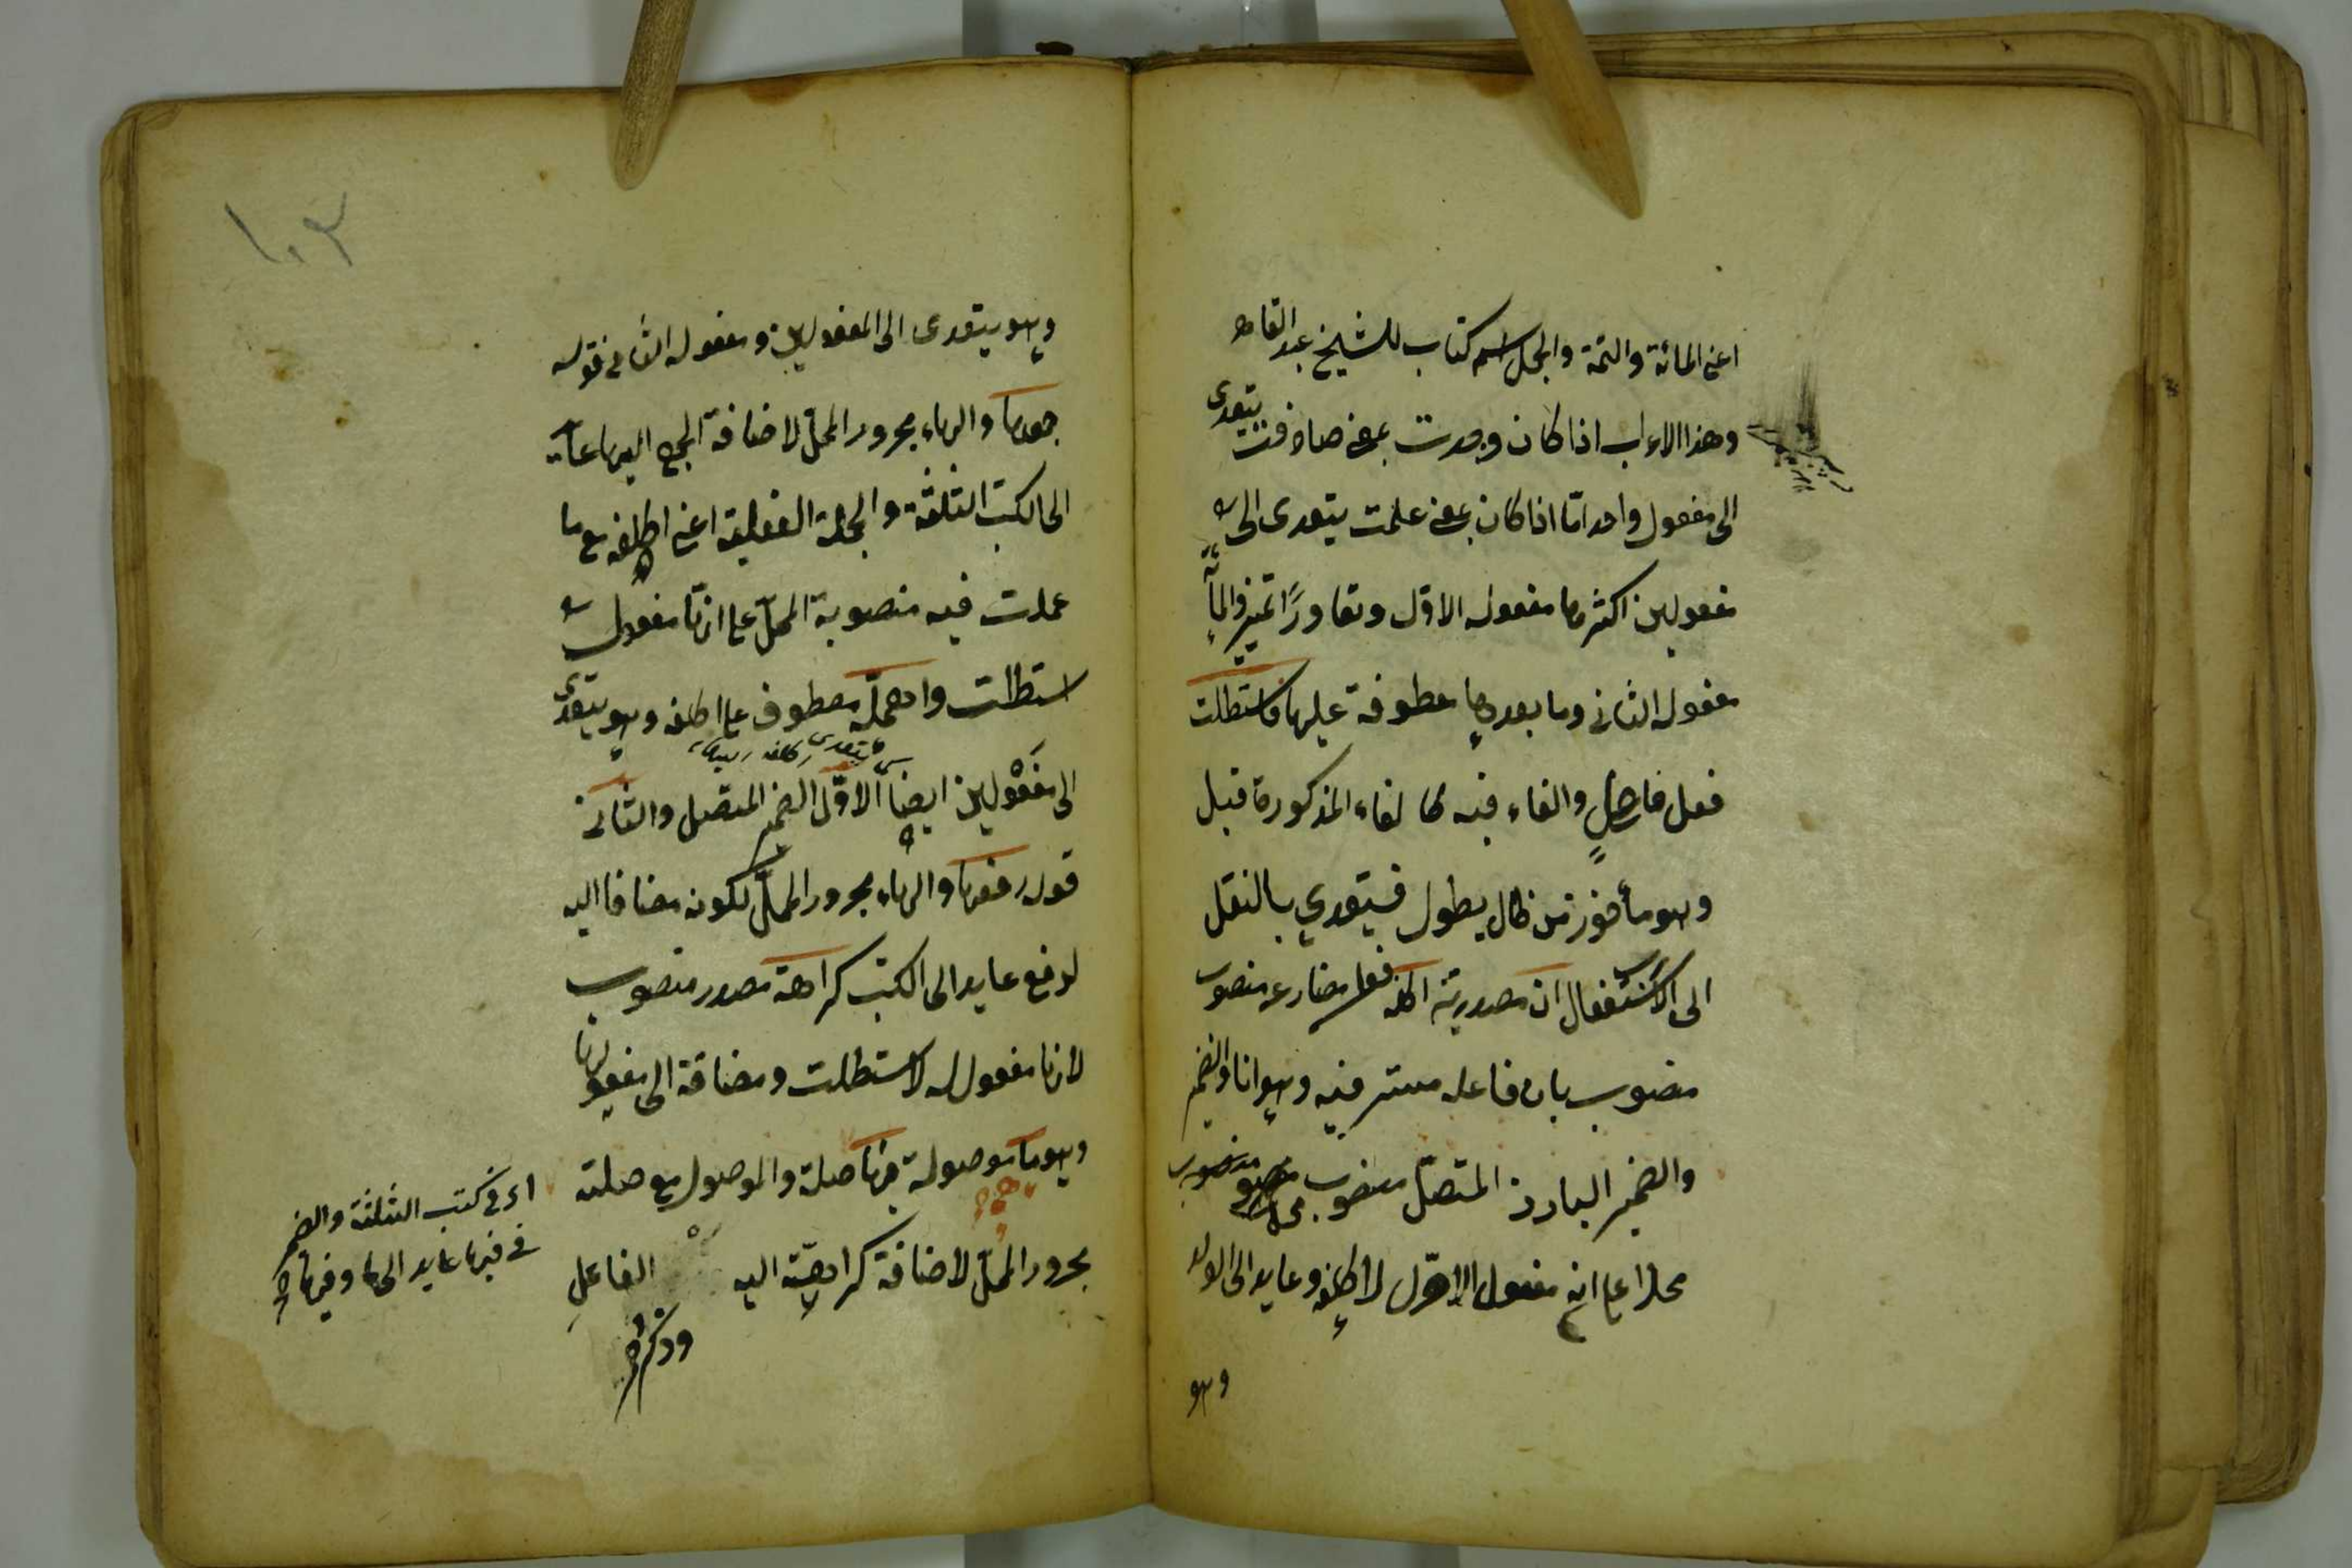 اعنى المائة والتتمة والجمل اسم كتاب للشيخ عبد القاهر
وهذا الاعراب اذا كان وجدت بمعنى صادفت يتعدى
الى مفعول واحد امّا اذا كان بمعنى علمت يتعدى الى
مفعولين اكثرها مفعوله الاوّل وتعاورًا تميز والمأة
مفعوله الثانى وما بعدها معطوفة عليها فاستطلت
فعل فاعل والفاء فيه كالفاء المذكورة قبل
وهو مأخوذ من طال يطول فيتعدي بالنقل
الى الاستفعال ان مصدرية اكلفه فعل مضارع منصوب
منصوب بان فاعله مستتر فيه وهو انا والضمير
والضمير البارز المتصل منصوب
محلا على انه مفعول الاوّل لاكلفه وعايد الى الولد
وهو
١٠٣
وهو يتعدى الى المفعولين ومفعوله الثانى قوله
جمعها والهاء مجرور المحلّ لاضافة الجمع اليها عايد
الى الكتب الثلثة والجملة الفعلية اعنى اكلفه مع ما
عملت فيه منصوبة المحلّ على انها مفعول
استطلت واحمله معطوف على اكلفه وهو يتعدى
الى مفعولين ايضا الاوّل الضمير المتصل والثانى
قوله رفعها والهاء مجرور المحلّ لكونه مضافا اليه
لرفع عايد الى الكتب كراهة مصدر منصوب
لانها مفعول له لاستطلت ومضافة الى مفعولها
وهو ما موصولة فيها صلة والموصول مع صلته
مجرور المحلّ لاضافة كراهية اليه الفاعل
وذكر
اى فى كتب الثلثة والضمير
فى فيها عايد الى ما وفيها